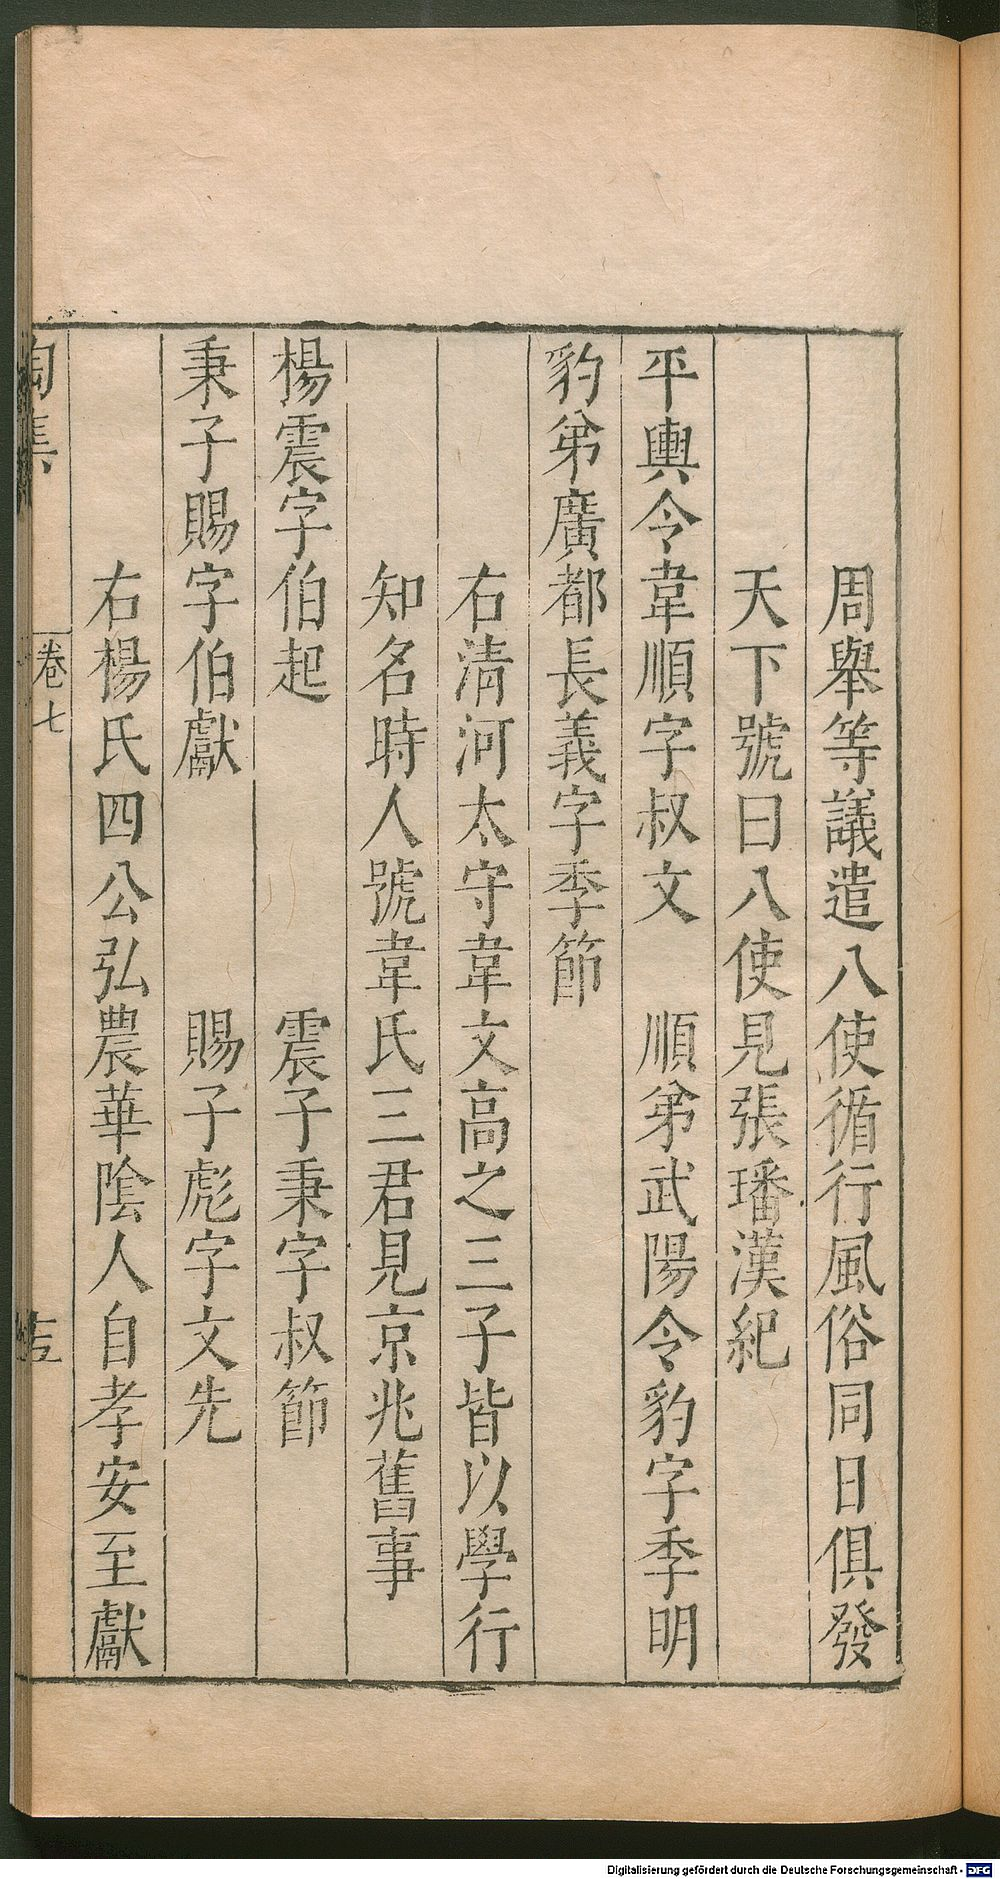 周舉等議遣八使循行風俗同日俱發
天下號曰八使見張璠漢紀
平輿令韋順字叔文　順弟武陽令豹字季明
豹弟廣都長義字季節
右清河太守韋文高之三子皆以學行
知名時人號韋氏三君見京兆舊事
楊震字伯起　震子秉字叔節
秉子賜字伯獻　賜子彪字文先
右楊氏四公弘農華陰人自孝安至獻
陶集　卷七
Digitalisierung gefördert durch die Deutsche Forschungsgemeinschaft - DFG